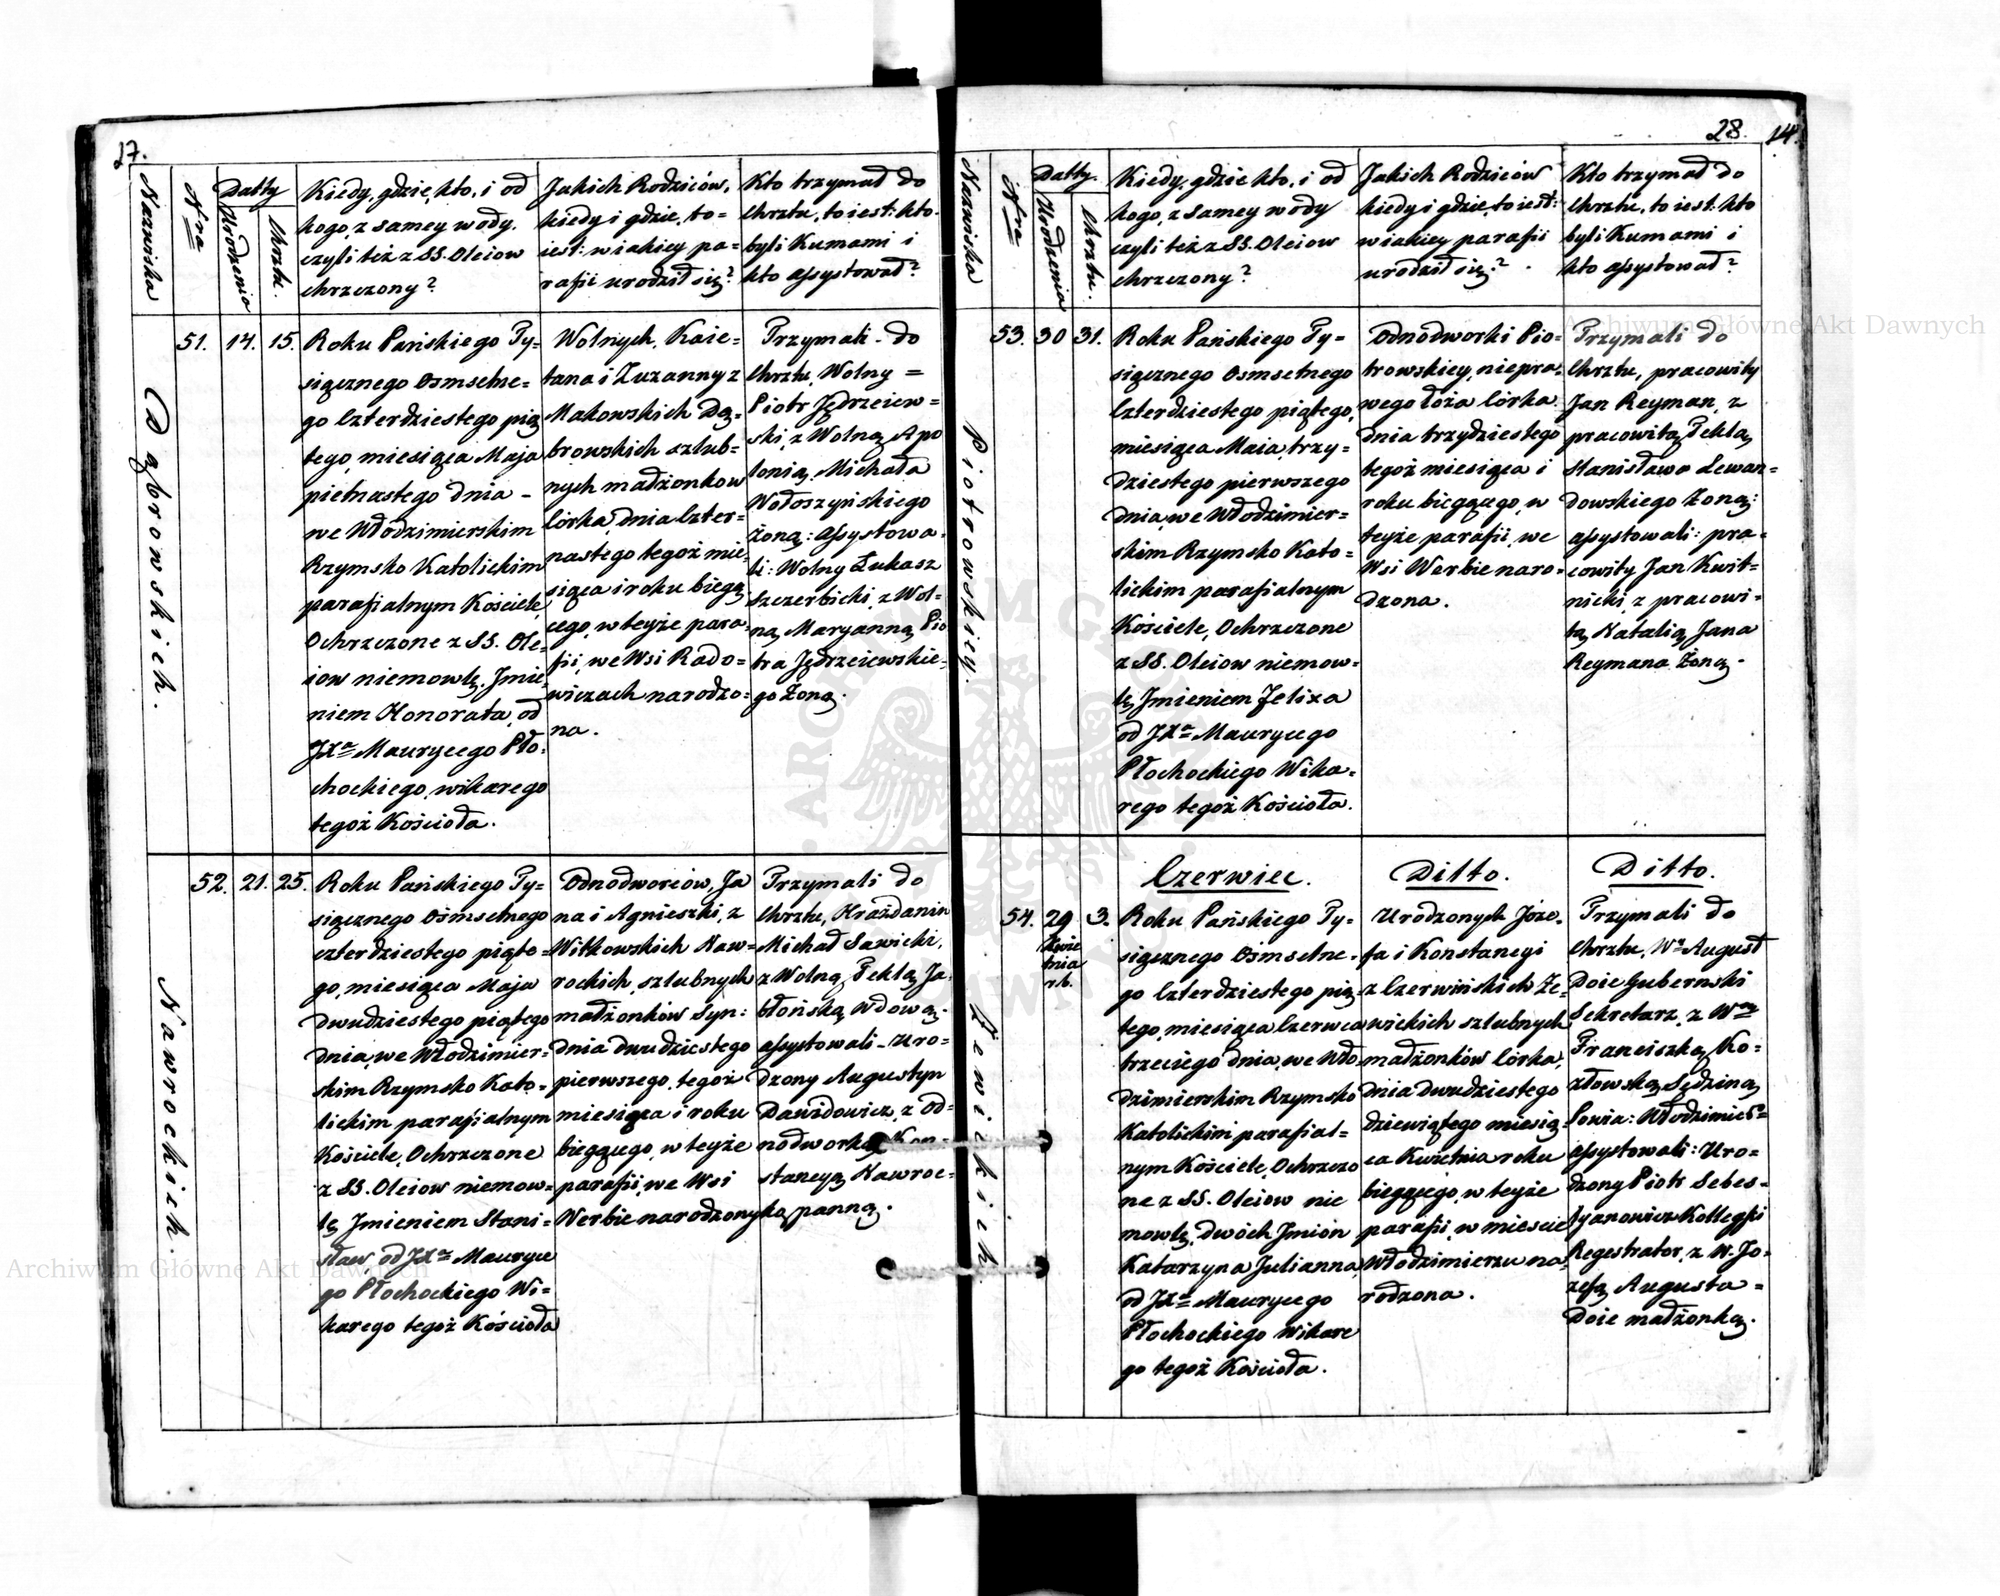 27.
Nazwiska
Nro
Datty
Urodzenia
Chrztu.
Kiedy, gdzie, kto, i od
kogo, z samey wody.
czyli też z SS. Oleiow
chrzczony?
Jakich Rodziców,
kiedy i gdzie, to=
iest: w iakiey pa=
rafii urodził się?
Kto trzymał do
Chrztu, to iest: kto
byli Kumami i
kto assystował?
Dąbrowskich.
51.
14.
15.
Roku Pańskiego Ty=
siącznego Osmsetne=
go Czterdziestego pią
tego, miesiąca Maja
pietnastego dnia -
we Włodzimierskim
Rzymsko Katolickim
parafialnym Kościele,
Ochrzczone z SS. Ole=
iow niemowlę, Jmie=
niem Honorata, od
JXa Maurycego Pło=
chockiego, wikarego
tegoż Kościoła.
Wolnych, Kaie=
tana i Zuzanny z
Makowskich Dą=
browskich szlub=
nych małżonkow
Córka, dnia Czter=
nastego tegoż mie=
siąca i roku bieżą
cego, w teyże para=
fii, we Wsi Rado=
wiczach narodzo=
na.
Trzymali do
Chrztu, Wolny =
Piotr Jędrzeiew=
ski, z Wolną Apo
lonią, Michała
Wołoszyńskiego
Żoną: assystowa=
li: Wolny Łukasz
Szczerbicki, z Wol=
ną, Maryanną, Pio
tra Jędrzeiewskie=
go Żoną.
Nawrockich.
52.
21.
25.
Roku Pańskiego Ty=
siącznego Ośmsetnego
czterdziestego piąte=
go, miesiąca Maja
Dwudziestego piątego
dnia, we Włodzimier=
skim Rzymsko Kato=
lickim parafialnym
Kościele, Ochrzczone
z SS. Oleiow niemow=
lę Jmieniem Stani=
sław, od JXa Mauryce
go Płochockiego Wi=
karego tegoż Kościoła
Odnodworców, Ja
na i Agnieszki, z
Witkowskich Naw=
rockich, szlubnych
małżonków Syn:
dnia dwudziestego
pierwszego, tegoż
miesiąca i roku
bieżącego, w teyże
parafii, we Wsi
Werbie narodzony
Trzymali do
Chrztu, Hrażdanin
Michał Sawicki,
z Wolną, Teklą, Ja=
błońską Wdową.
assystowali - Uro=
dzony Augustyn
Dawidowicz, z Od=
nodworką Kon=
stancyą, Nawroc=
ką panną.
28.
14.
Nazwiska
Nro
Datty.
Urodzenia
Chrztu.
Kiedy, gdzie kto, i od
kogo, z samey wody
czyli też z SS. Oleiow
chrzczony?
Jakich Rodziców
kiedy i gdzie, to iest:
w iakiey parafii
urodził się?
Kto trzymał do
Chrztu, to iest: kto
byli Kumami i
kto assystował?
Piotrowskiey
53.
30
31.
Roku Pańskiego Ty=
siącznego Osmsetnego
Czterdziestego piątego,
miesiąca Maia, trzy=
dziestego pierwszego
dnia, we Włodzimier=
skim Rzymsko Kato=
lickim parafialnym
Kościele, Ochrzczone
z SS. Oleiow niemow=
lę, Jmieniem Felixa
od JXa Maurycego
Płochockiego Wika=
rego tegoż Kościoła.
Odnodworki Pio=
trowskiey, niepra=
wego łoża Córka.
dnia trzydziestego
tegoż miesiąca i
roku bieżącego, w
teyże parafii, we
Wsi Werbie naro=
dzona.
Trzymali do
Chrztu, pracowity
Jan Reyman, z
pracowitą Teklą,
Stanisława Lewan=
dowskiego Żoną:
assystowali: pra=
cowity Jan Kwit=
nicki, z pracowi=
tą, Natalią, Jana
Reymana Żoną.
Czerwiec.
Ditto.
Ditto.
Zewickich.
54.
29
Kwie
tnia
r.b.
3.
Roku Pańskiego Ty=
siącznego Ośmsetne=
go Czterdziestego pią=
tego, miesiąca Czerwca
trzeciego dnia, we Wło
dzimierskim Rzymsko
Katolickim parafial=
nym Kościele, Ochrzczo
ne z SS. Oleiow nie
mowlę, dwóch Jmion
Katarzyna Julianna
od JXa Maurycego
Płochockiego Wikare
go tegoż Kościoła.
Urodzonych Józe=
fa i Konstancyi
z Czerwińskich Ze=
wickich szlubnych
małżonków Córka,
dnia dwudziestego
dziewiątego miesią=
ca Kwietnia roku
bieżącego, w teyże
parafii, w mieście
Włodzimierzu na
rodzona.
Trzymali do
Chrztu, Wy August
Doie Gubernski
Sekretarz, z Wną
Franciszką Ko=
złowską Sędziną,
Powia: Włodzimie
assystowali: Uro=
dzony Piotr Sebes=
tyanowicz Kollegski
Regestrator, z W. Jó=
zefą Augusta =
Doie małżonką.
Archiwum Główne Akt Dawnych
Archiwum Główne Akt Dawnych